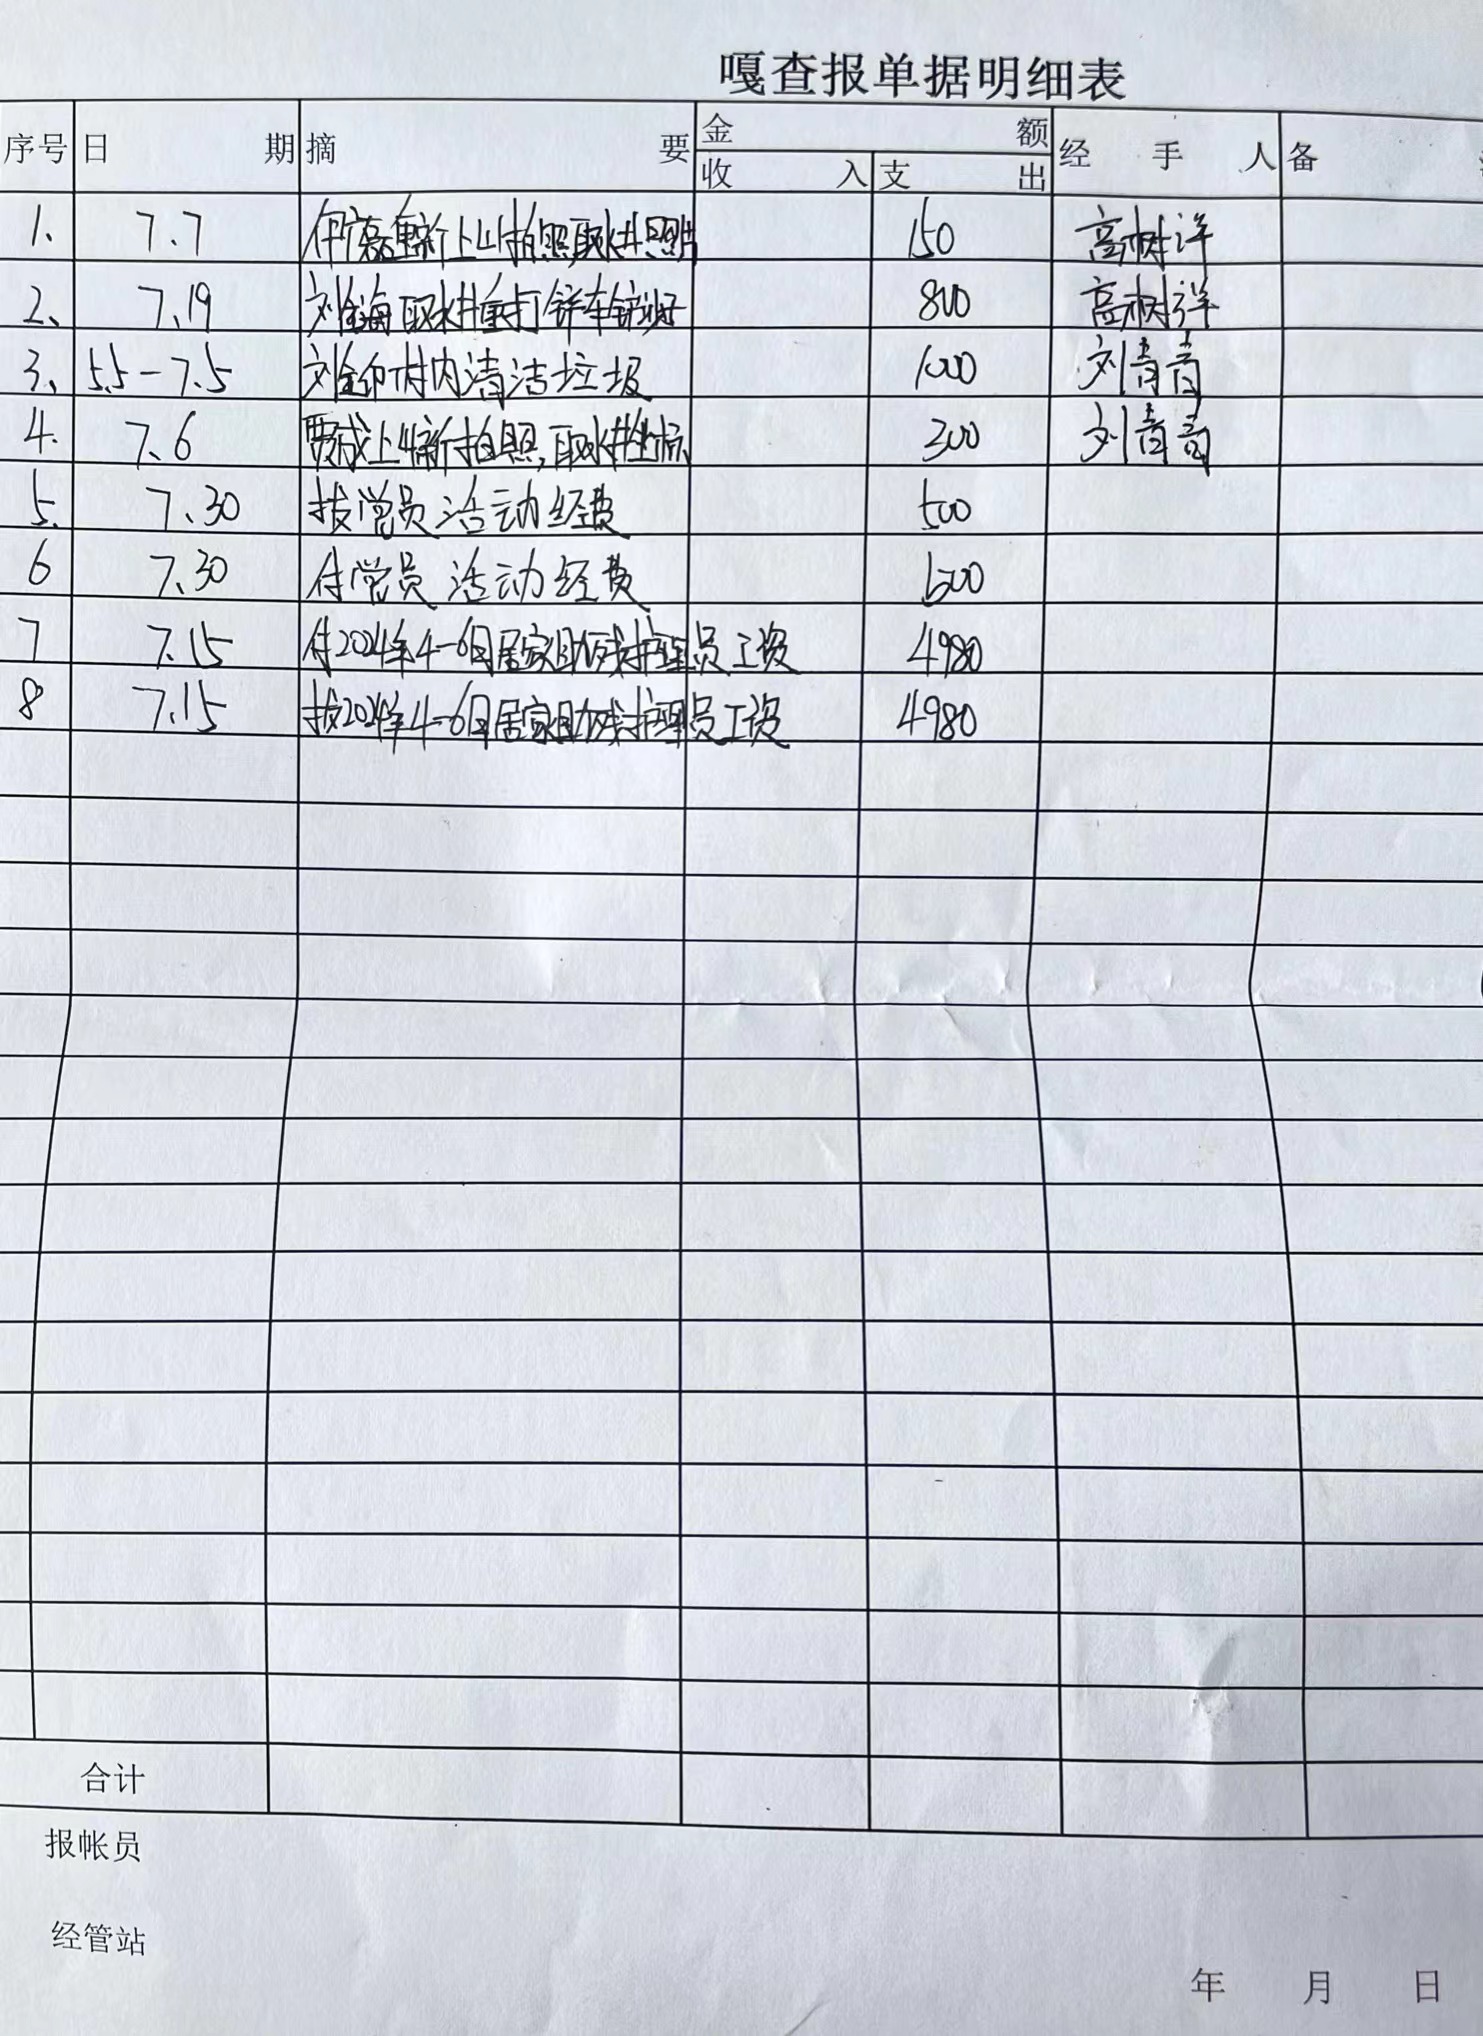 嘎查报单据明细表
序号 日期 摘要 金额 经手人 备
收入 支出
1. 7.7 伊磊重新上山拍照取水井照片 150 高树洋
2、 7.19 刘金海取水井重打 铲车铲 800 高树洋
3、 5.5-7.5 刘金 村内清洁垃圾 1000 刘青青
4. 7.6 贾成上山重新拍照,取水井坐标 300 刘青青
5. 7.30 拨党员活动经费 500
6 7.30 付党员活动经费 500
7 7.15 付2024年4-6月居家助残护理员工资 4980
8 7.15 拨2024年4-6月居家助残护理员工资 4980
合计
报帐员
经管站
年 月 日